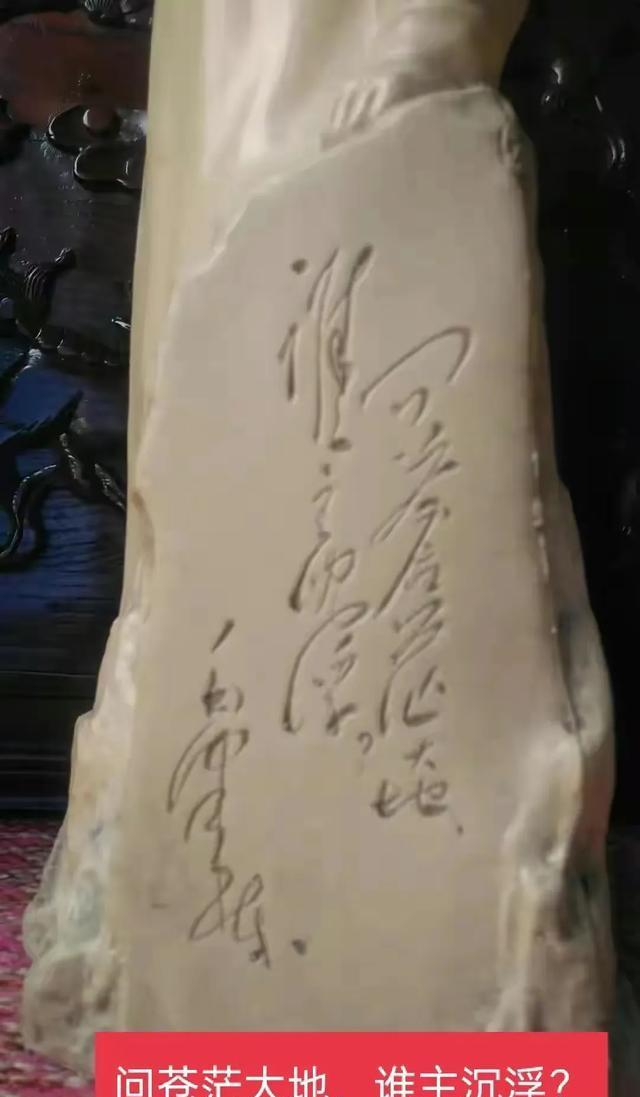 问苍茫大地、
谁主沉浮?
毛泽东
问苍茫大地 谁主沉浮?